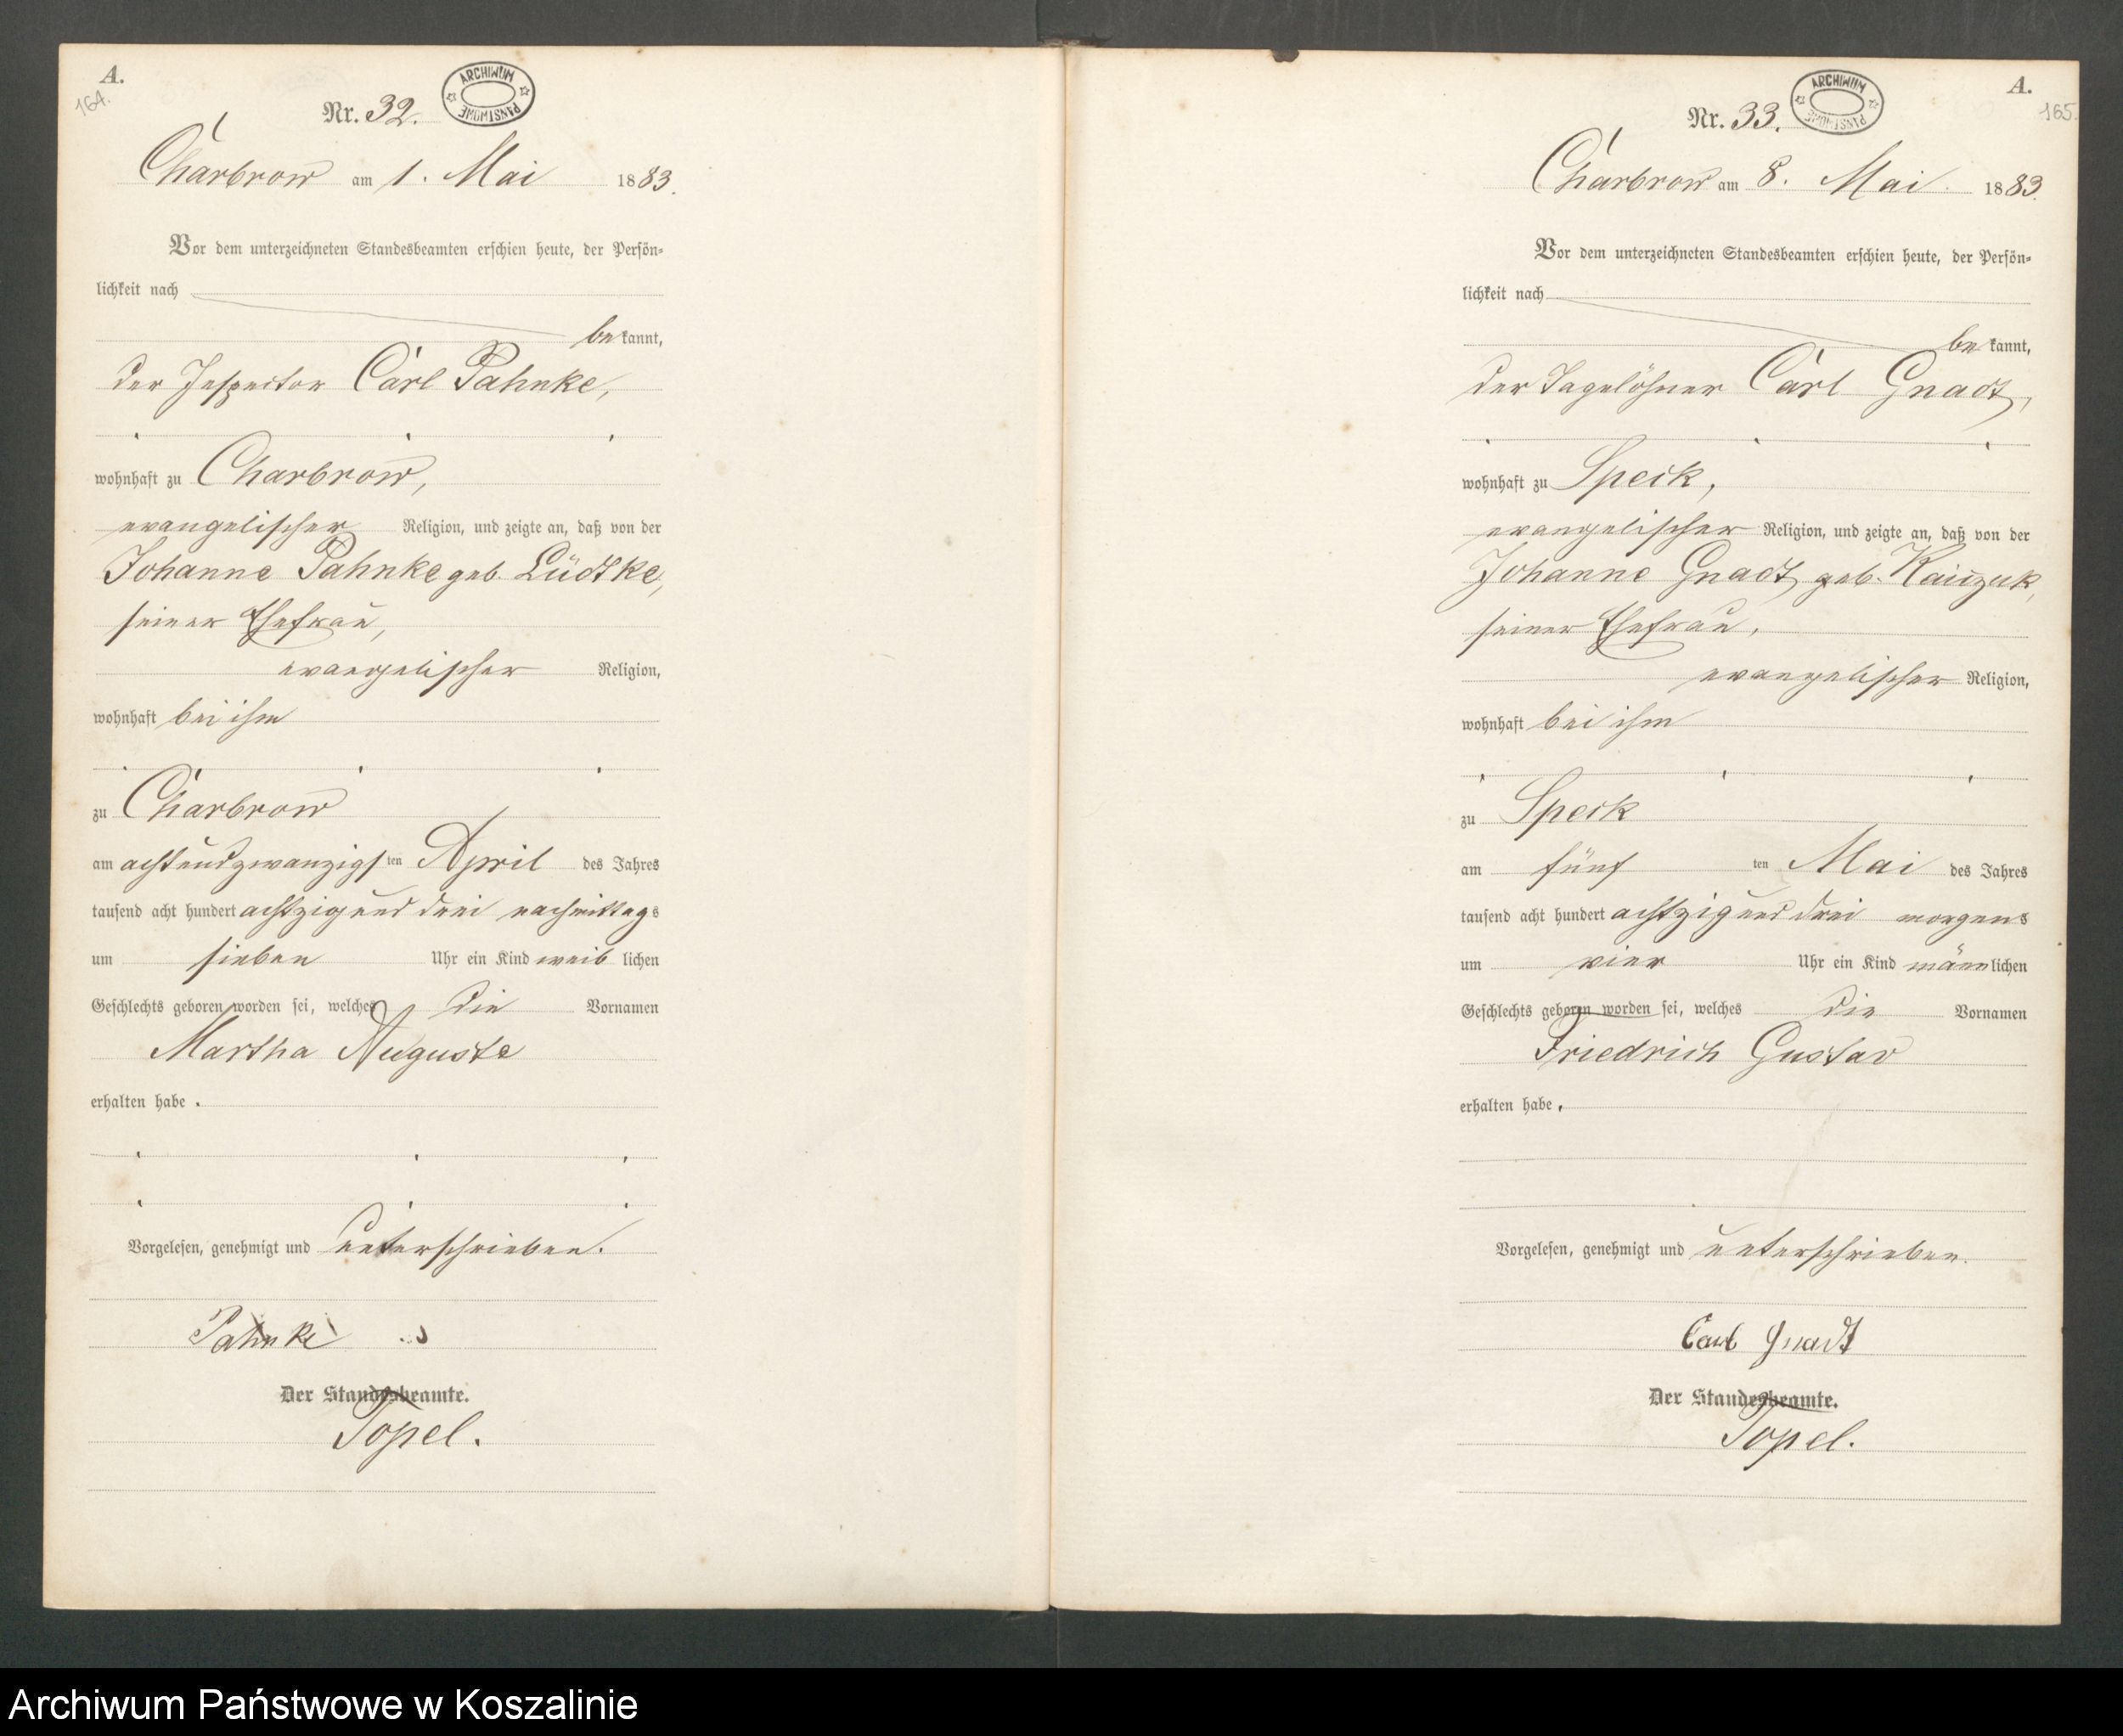 A.
164.
Nr. 32.
ARCHIWUM PAŃSTWOWE
Charbrow am 1. Mai 1883.
Vor dem unterzeichneten Standesbeamten erschien heute, der Persön-
lichkeit nach
bekannt,
der Inspector Carl Pahnke,
wohnhaft zu Charbrow,
evangelischer Religion, und zeigte an, daß von der
Johanne Pahnke geb. Lüdtke,
seiner Ehefrau,
evangelischer Religion,
wohnhaft bei ihm
zu Charbrow
am achtundzwanzigsten April des Jahres
tausend acht hundert achtzig und drei nachmittags
um sieben Uhr ein Kind weiblichen
Geschlechts geboren worden sei, welches die Vornamen
Martha Auguste
erhalten habe.
Vorgelesen, genehmigt und unterschrieben.
Pahnke
Der Standesbeamte.
Topel.
A.
165.
Nr. 33.
ARCHIWUM PAŃSTWOWE
Charbrow am 8. Mai 1883.
Vor dem unterzeichneten Standesbeamten erschien heute, der Persön-
lichkeit nach
bekannt,
der Tagelöhner Carl Gnadt,
wohnhaft zu Speck,
evangelischer Religion, und zeigte an, daß von der
Johanne Gnadt geb.
seiner Ehefrau,
evangelischer Religion,
wohnhaft bei ihm
zu Speck
am fünften Mai des Jahres
tausend acht hundert achtzig und drei morgens
um vier Uhr ein Kind männlichen
Geschlechts geboren worden sei, welches die Vornamen
Friedrich Gustav
erhalten habe.
Vorgelesen, genehmigt und unterschrieben.
Carl Gnadt
Der Standesbeamte.
Topel.
Archiwum Państwowe w Koszalinie